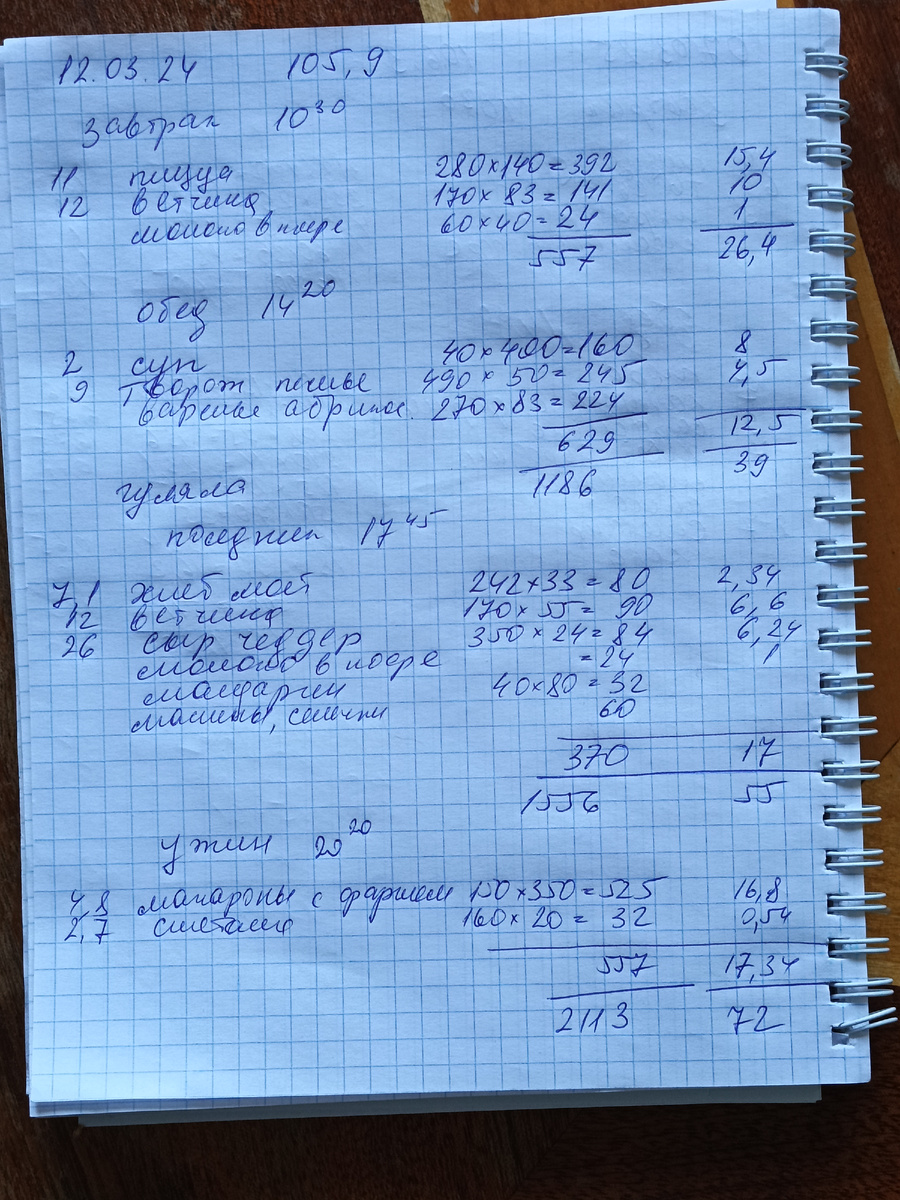 12.03.24 105,9
завтрак 10 30
11 пицца 280×140=392 15,4
12 ветчина 170×83=141 10
молоко в кофе 60×40=24 1
557 26,4
обед 14 20
2 суп 40×400=160 8
9 творож печенье 490×50=245 4,5
варенье абрикос. 270×83=224
629 12,5
1186 39
гуляла
полдник 17 45
7,1 хлеб мой 242×33=80 2,34
12 ветчина 170×55=90 6,6
26 сыр чеддер 350×24=84 6,24
молоко в кофе =24 1
мандарин 40×80=32
60
370 17
1556 55
ужин 20 20
4,8 макароны с фаршем 150×350=525 16,8
2,7 сметана 160×20=32 0,54
557 17,34
2113 72